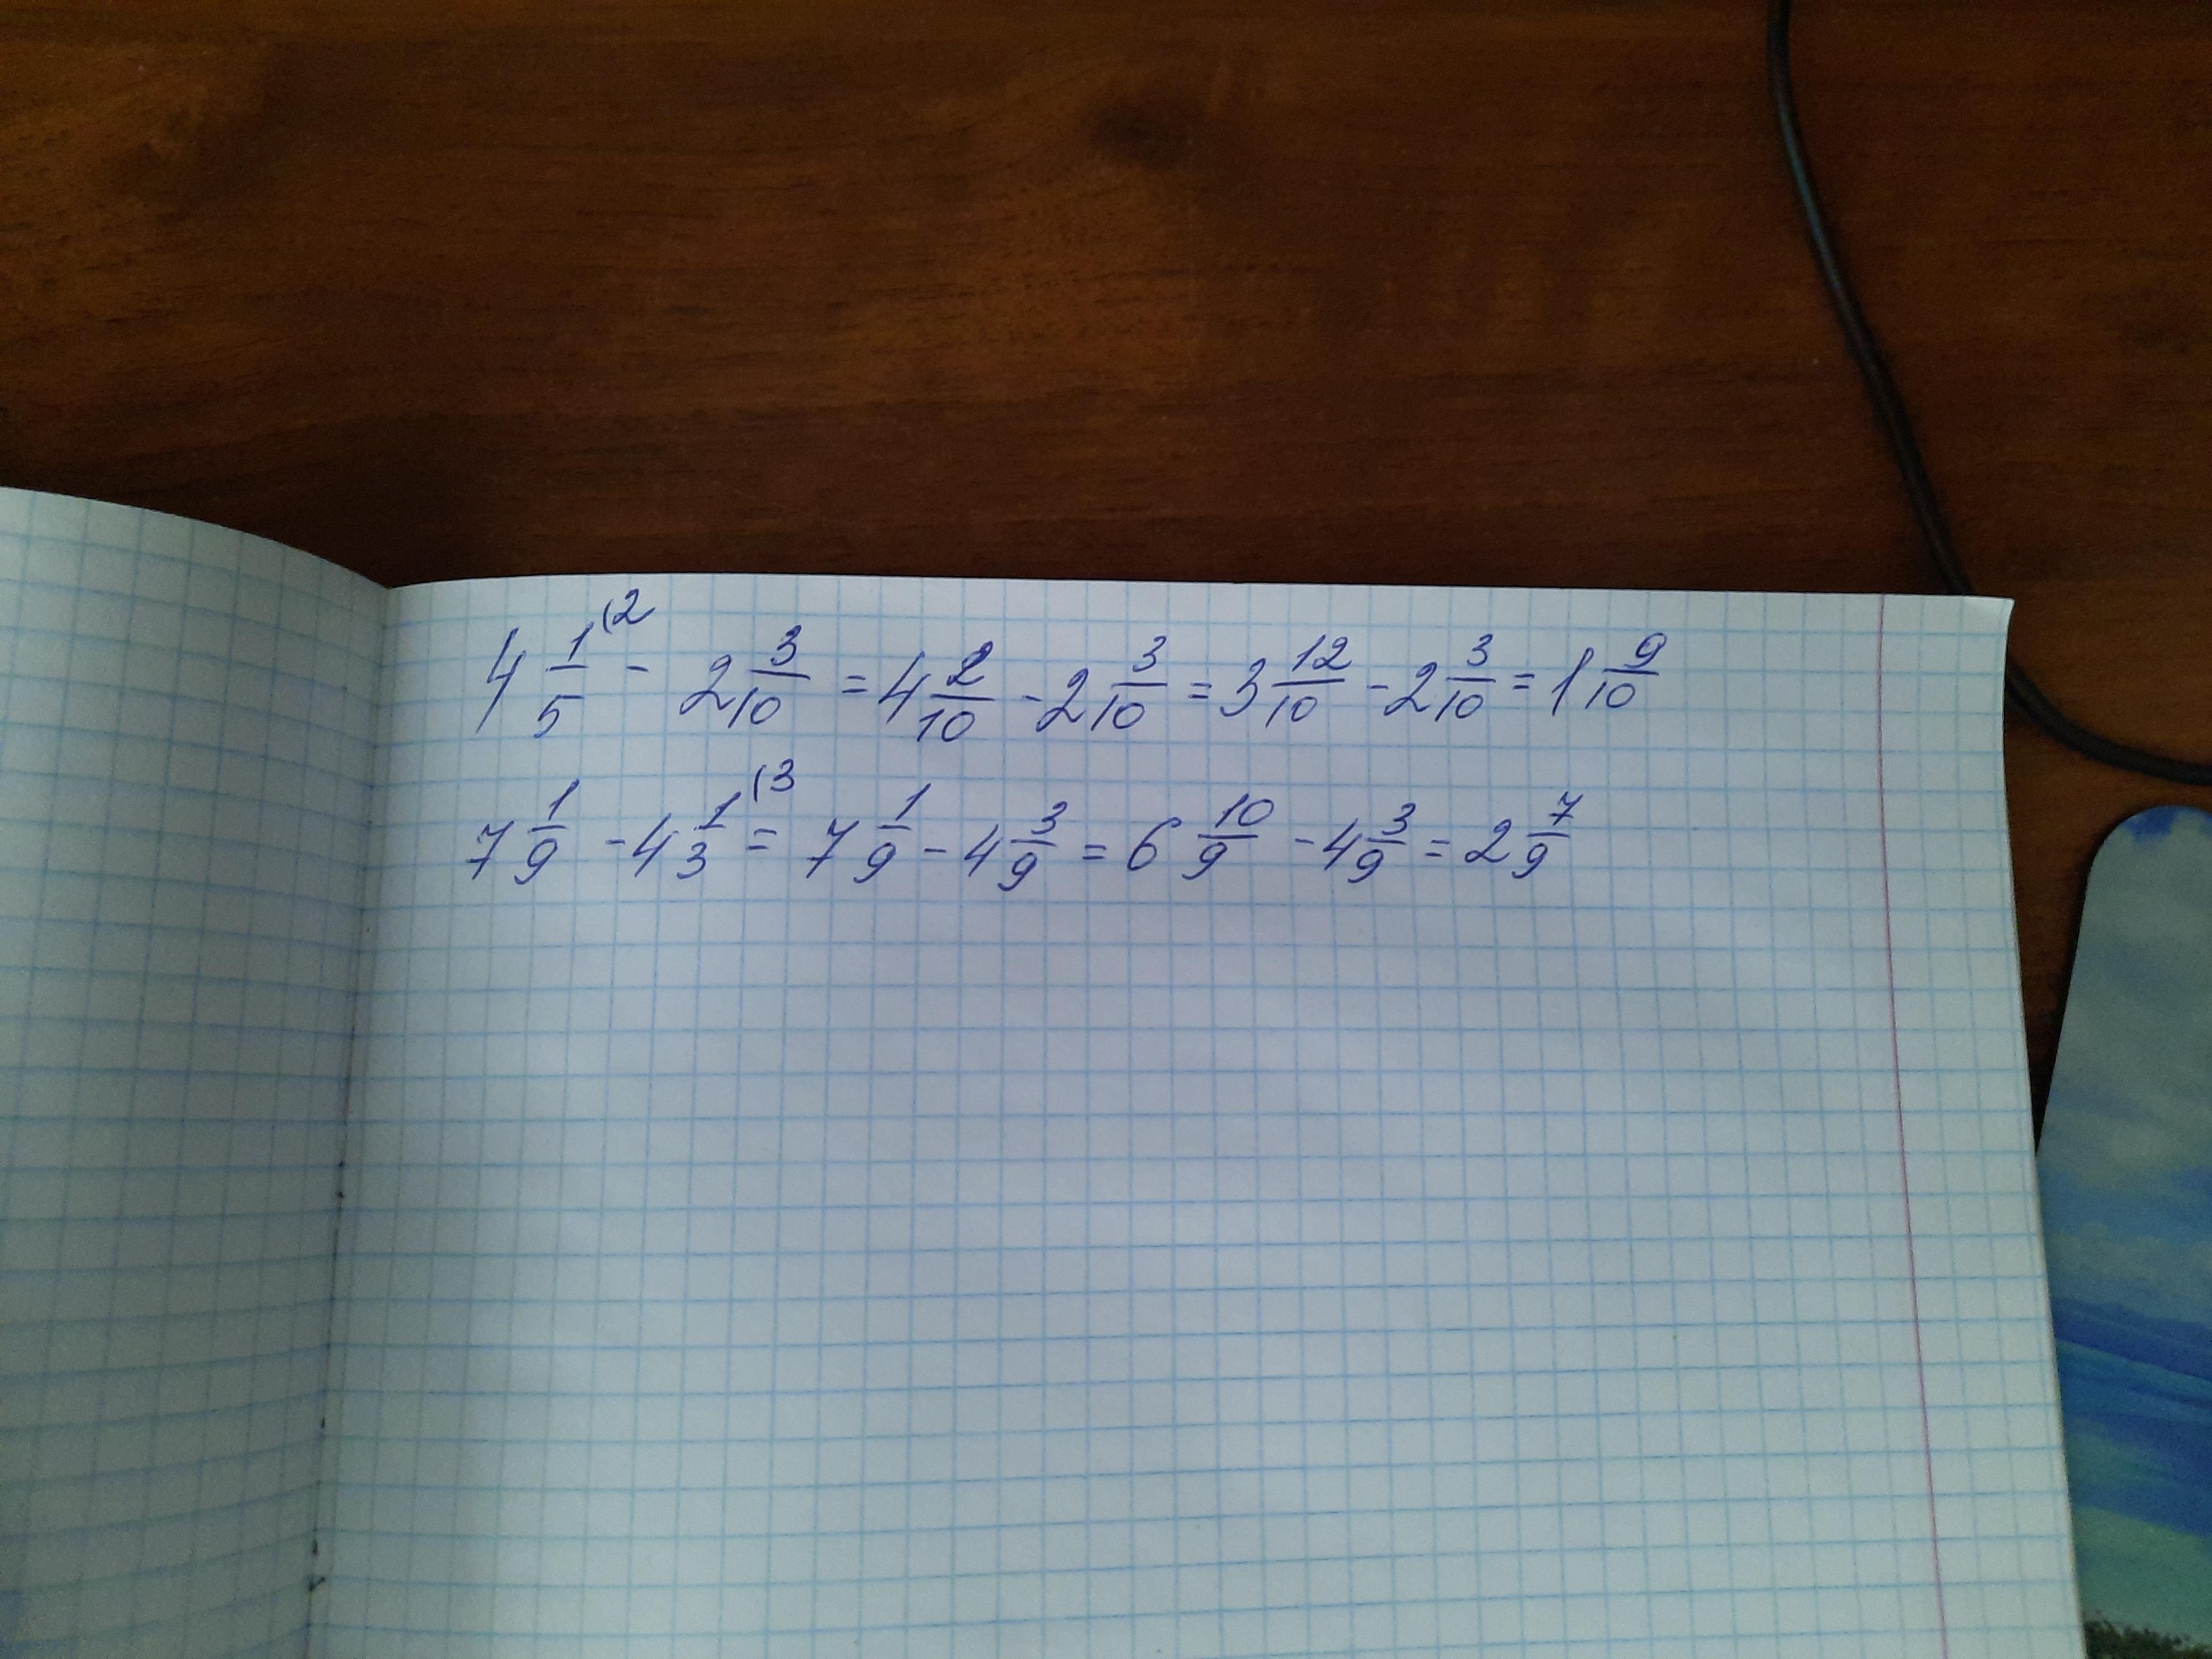 4 1/5 (2 - 2 3/10 = 4 2/10 - 2 3/10 = 3 12/10 - 2 3/10 = 1 9/10
7 1/9 - 4 1/3 (3 = 7 1/9 - 4 3/9 = 6 10/9 - 4 3/9 = 2 7/9